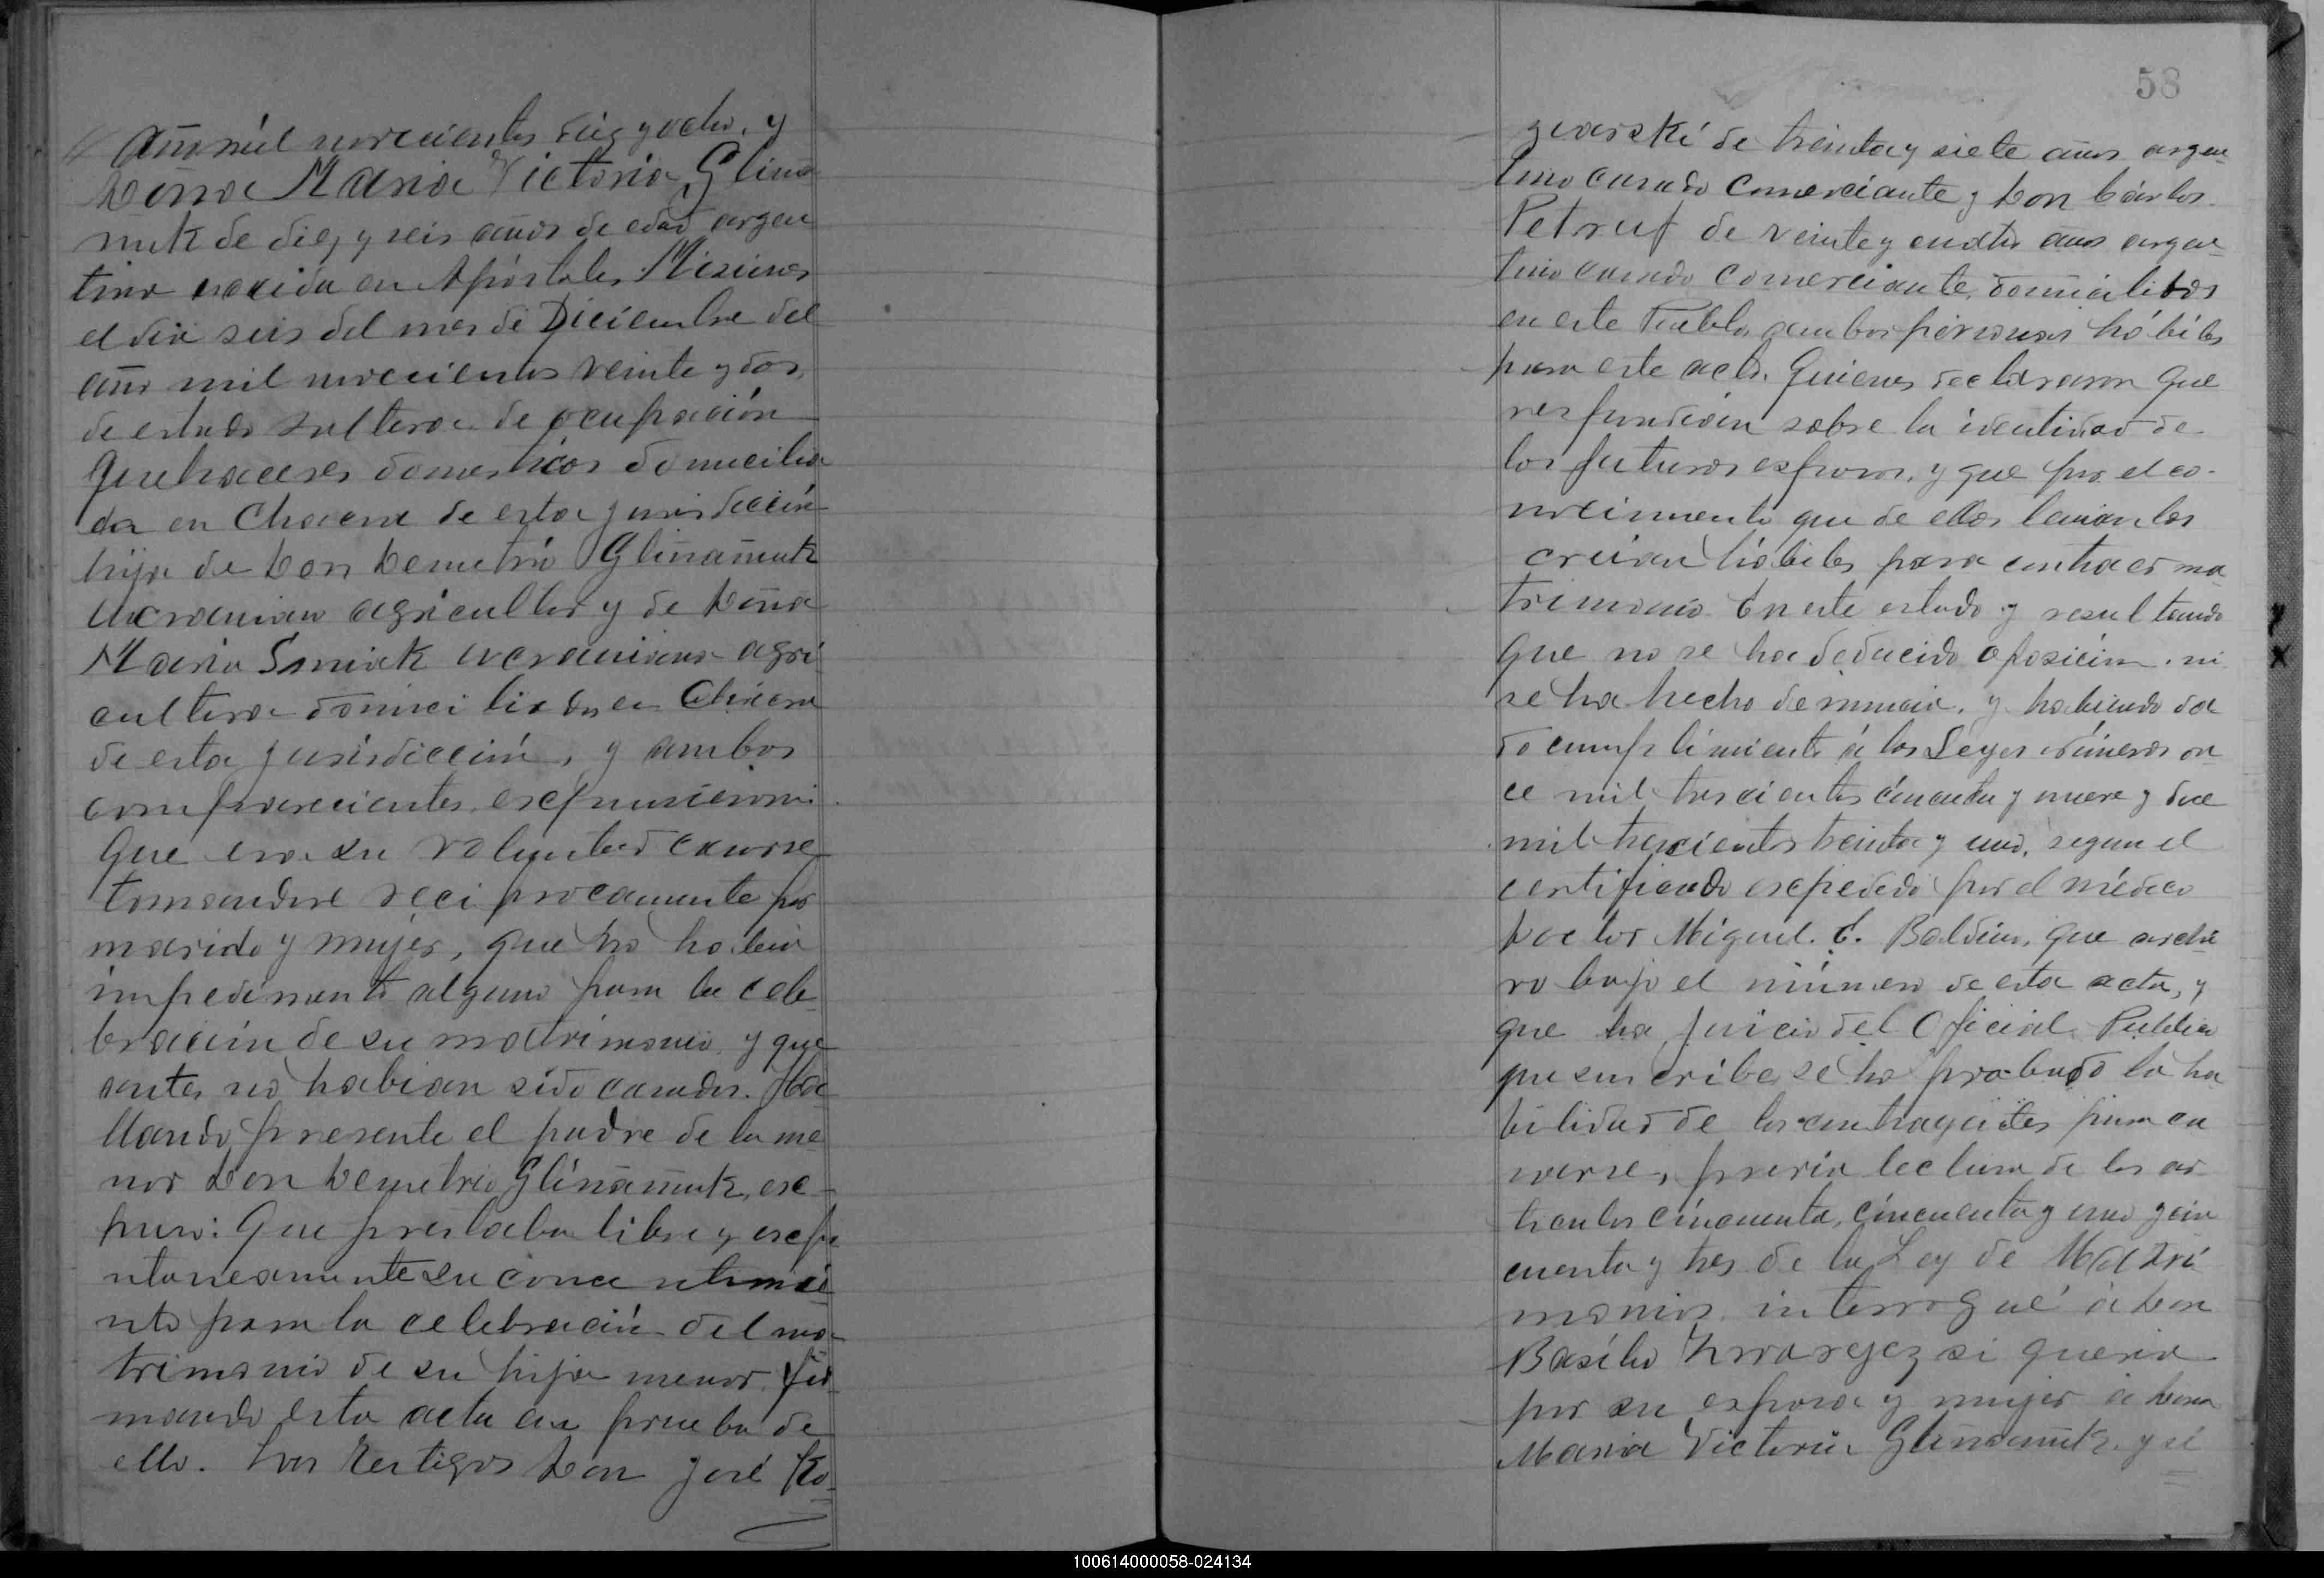 Año mil novecientos diez y ocho, y
Doña Maria Victoria Gliña
muk de diez y seis años de edad argen
tina nacida en Apóstoles Misiones
el dia seis del mes de Diciembre del
año mil novecientos veinte y dos,
de estado soltera de ocupación
quehaceres domesticos domicilia
da en Chacra de esta jurisdicción
hija de Don Demetrio Gliñamuk
ucraniano agricultor y de Doña
Maria Semiak ucraniana agri
cultora domiciliados en Chacra
de esta jurisdicción, y ambos
comparecientes expusieron:
Que era su voluntad casarse
tomandose reciprocamente por
marido y mujer, que no habia
impedimento alguno para la cele
bración de su matrimonio y que
antes no habian sido casados. Ha
llando presente el padre de la me
nor Don Demetrio Gliñamuk, ex-
puso: Que prestaba libre y espo
ntaneamente su concentimie
nto para la celebración del ma
trimonio de su hija menor fir
mando esta acta en prueba de
ello. Los testigos Don José Ko-
58
zvarski de treinta y siete años argen
tino casado comerciante y Don Cárlos
Petruf de veinte y cuatro años argen
tino casado comerciante, domicilidos
en este Pueblo, ambos personas hábiles
para este acto. Quienes declararon que
respondian sobre la identidad de
los futuros esposos, y que por el co-
nocimiento que de ellos tenian los
creian hábiles para contraer ma
trimonio. En este estado y resultando
que no se ha deducido oposición, ni
se ha hecho denuncia, y habiendo da
do cumplimiento á las Leyes números on
ce mil trescientos cincuenta y nueve y doce
mil trescientos treinta y uno, segun el
certificado expedido por el médico
Doctor Miguel. C. Baldini, que archi
vo bajo el número de esta acta, y
que ha juicio del Oficial Publico
que suscribe, se ha probado la ha
bilidad de los contrayentes para ca
sarse, previa lectura de los ar
ticulos cincuenta, cincuenta y uno y cin
cuenta y tres de la Ley de Matri
monios interrogué á Don
Basilio si queria
por su esposa y mujer á Doña
Maria Victoria Gliñamuk. y si
100614000058-024134